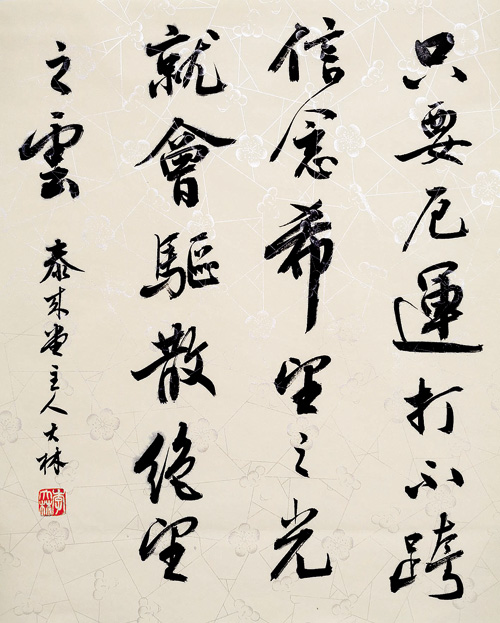 只要厄運打不跨
信念希望之光
就會驅散絕望
之雲
泰來堂主人大林